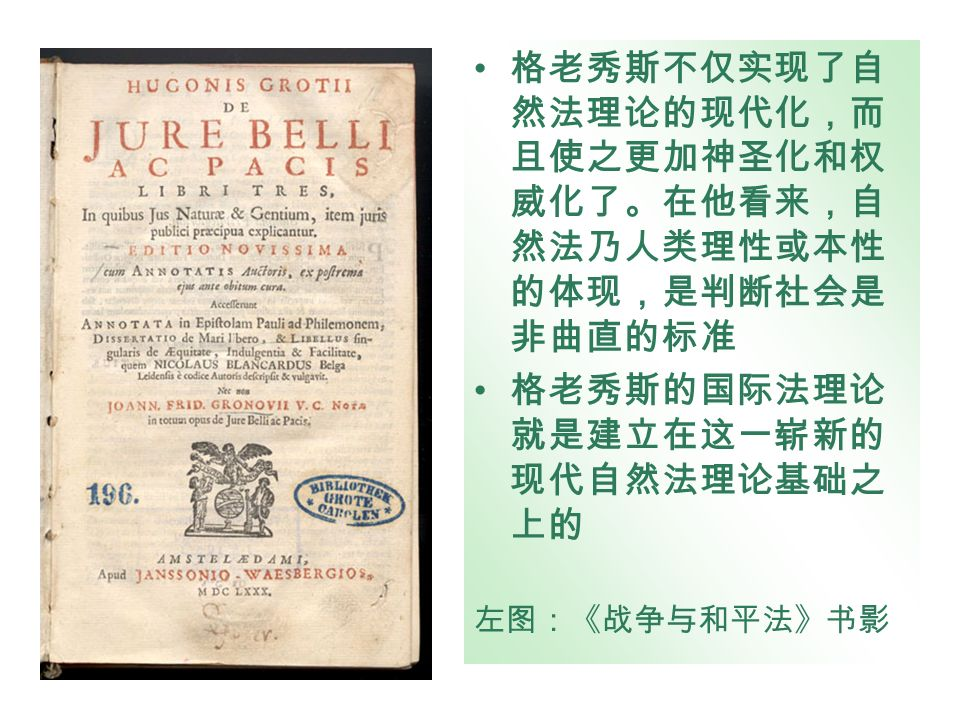 HUGONIS GROTII
DE
JURE BELLI
AC PACIS
LIBRI TRES,
In quibus Jus Naturæ & Gentium, item juris
publici præcipua explicantur.
EDITIO NOVISSIMA
cum ANNOTATIS Auctoris, ex poſtrema
ejus ante obitum cura.
Acceſſerunt
ANNOTATA in Epiſtolam Pauli ad Philemonem,
DISSERTATIO de Mari libero, & LIBELLUS ſin-
gularis de Æquitate, Indulgentia & Facilitate,
quem NICOLAUS BLANCARDUS Belga
Leidenſis è codice Autoris deſcripſit & vulgavit.
Nec non
JOANN. FRID. GRONOVII V. C. Notæ
in totum opus de Jure Belli ac Pacis.
196.
BIBLIOTHEEK
GROTE
CAROLEN
AMSTELÆDAMI,
Apud JANSSONIO-WAESBERGIOS,
M DC LXXX.
• 格老秀斯不仅实现了自
然法理论的现代化，而
且使之更加神圣化和权
威化了。在他看来，自
然法乃人类理性或本性
的体现，是判断社会是
非曲直的标准
• 格老秀斯的国际法理论
就是建立在这一崭新的
现代自然法理论基础之
上的
左图：《战争与和平法》书影